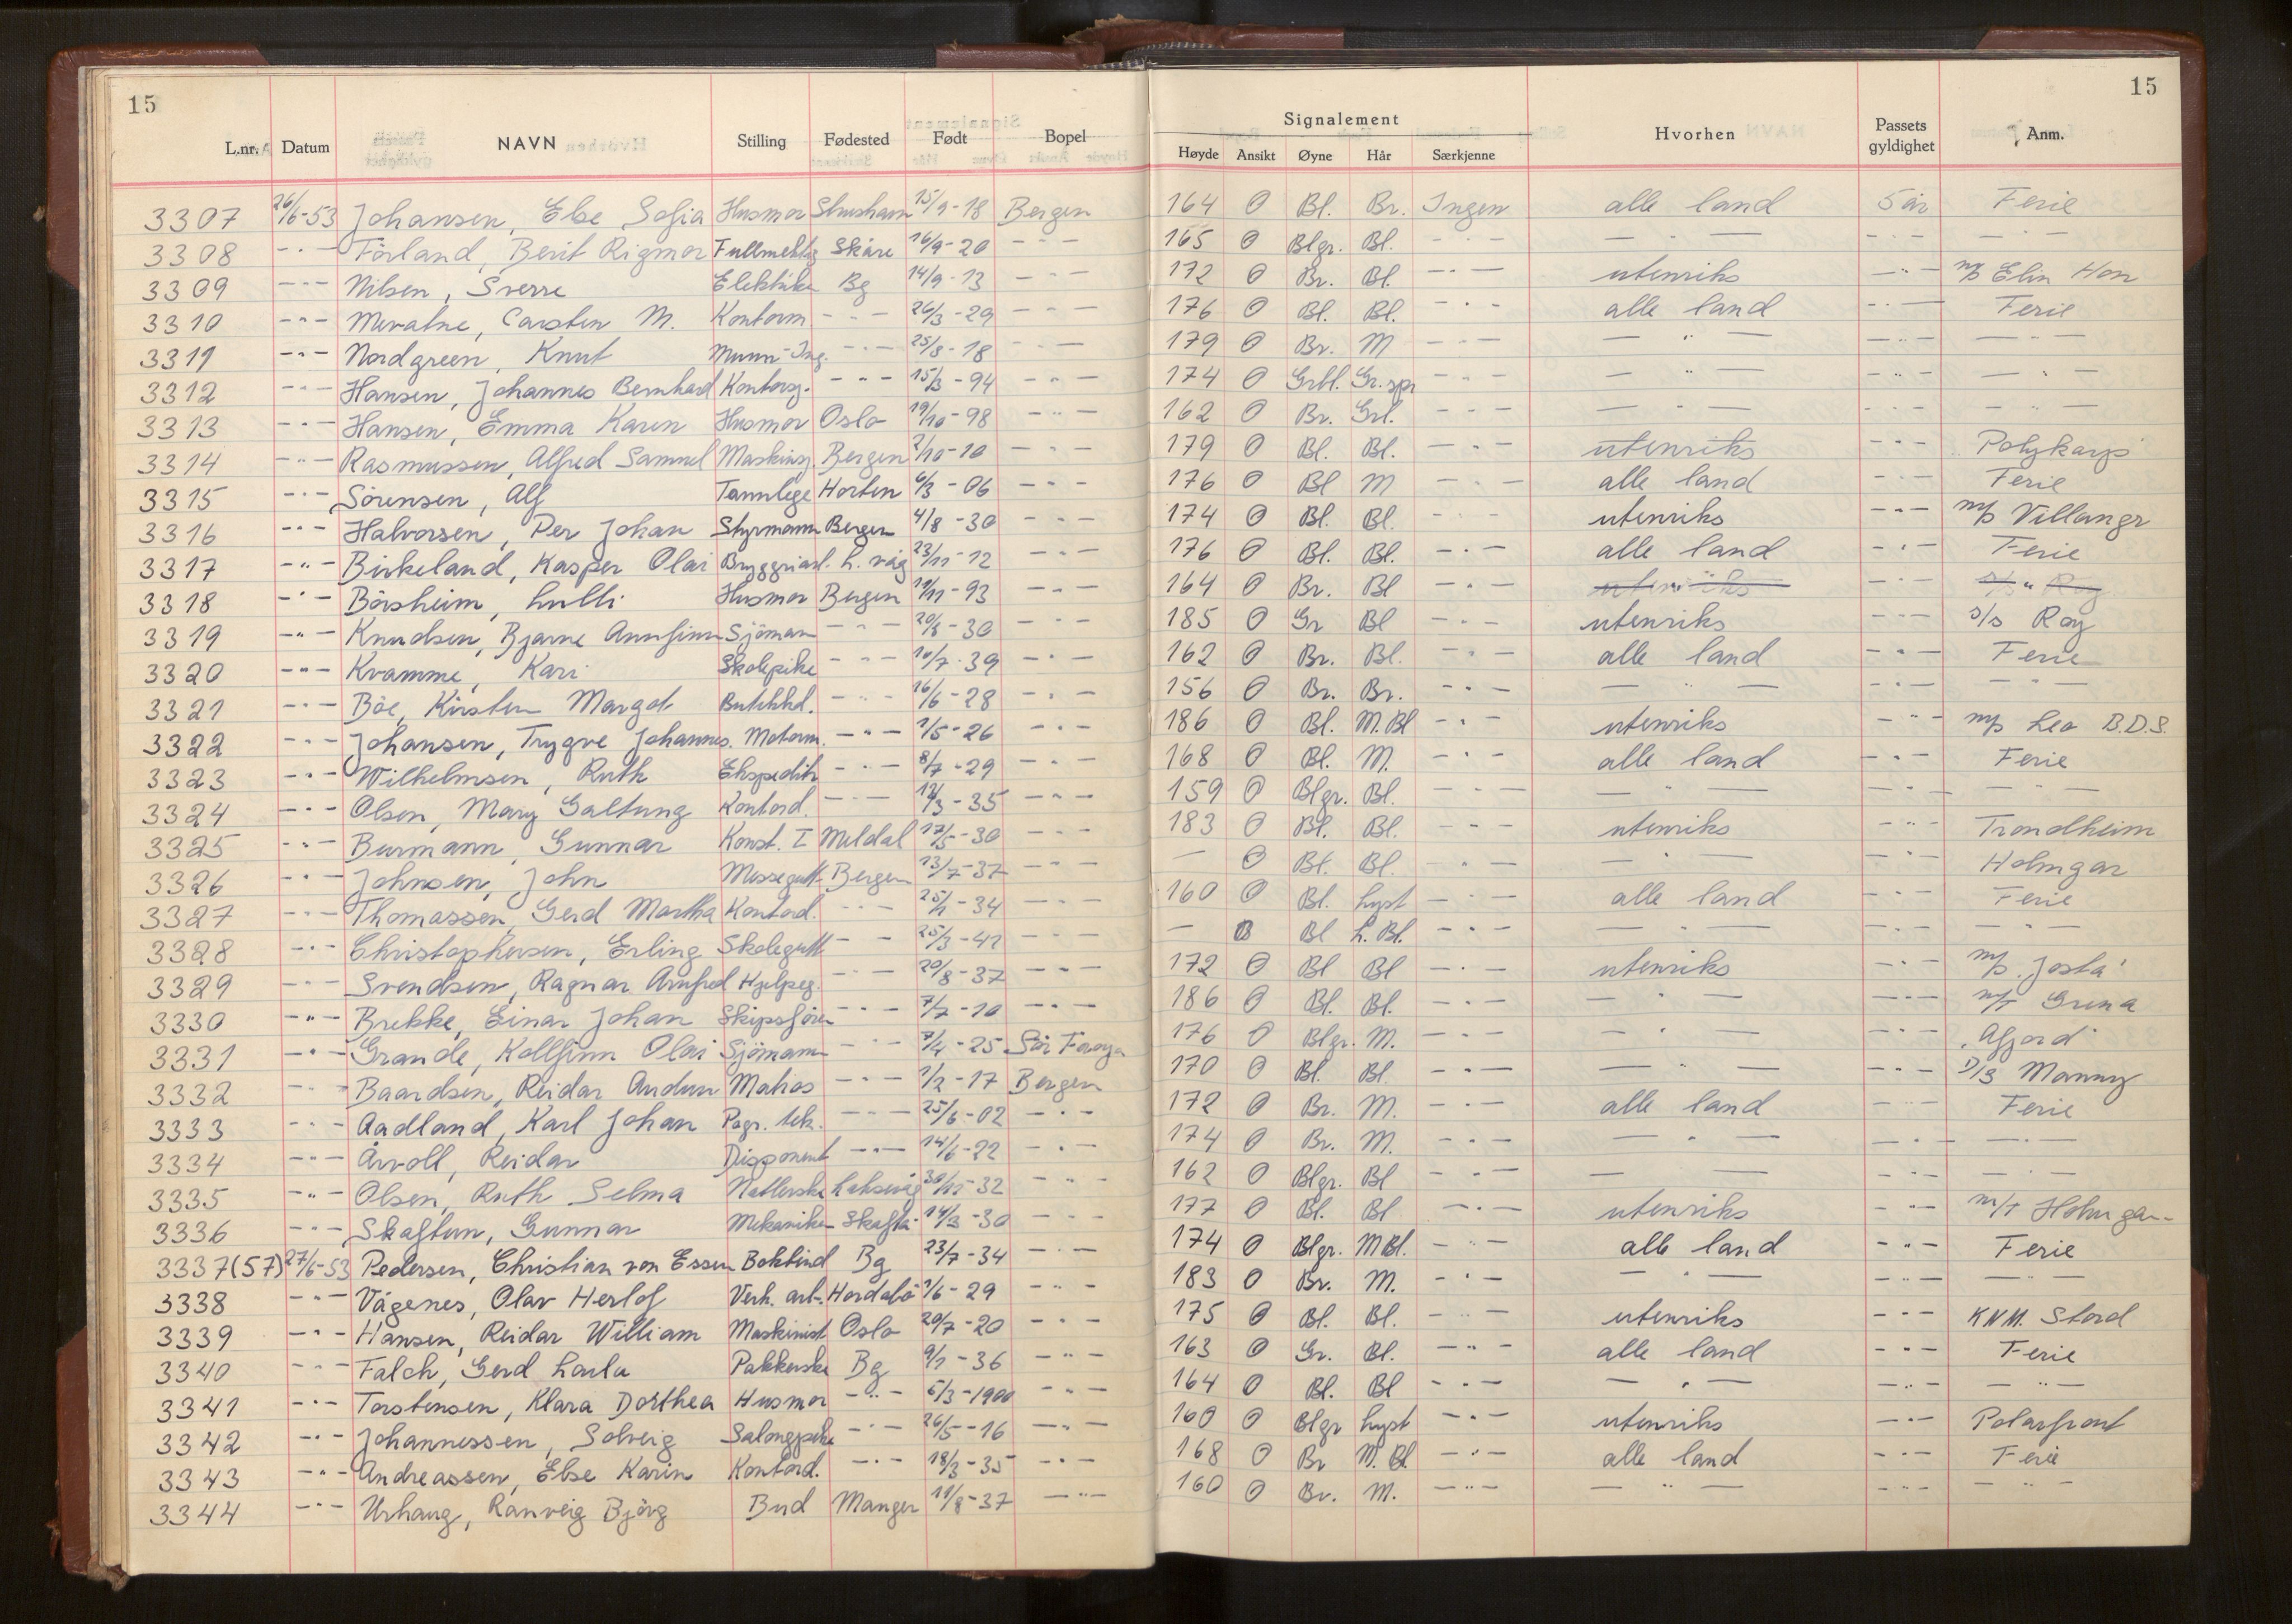 15 15
Signalement
L.nr. Datum NAVN Stilling Fødested Født Bopel Høyde Ansikt Øyne Hår Særkjenne Hvorhen Passets gyldighet Anm.
3307 26/6-53 Johansen, Else Sofia Husmor 15/9-18 Bergen 164 O Bl. Br. Ingen alle land 5 år Ferie
3308 -"- Förland, Berit Rigmor Fullmektig Skåre 16/9-20 -"- 165 O Blgr. Bl. -"- -"- -"- -"-
3309 -"- Nilsen, Sverre Elektriker Bg 14/9-13 -"- 172 O Br. Bl. -"- utenriks -"- m/s Elin Hon
3310 -"- Mevatne, Carsten M. Kontorm -"- 26/3-29 -"- 176 O Bl. Bl. -"- alle land -"- Ferie
3311 -"- Nordgreen, Knut -"- 25/8-18 -"- 179 O Br. M -"- -"- -"- -"-
3312 -"- Hansen, Johannes Bernhard Kontorsj. -"- 15/3-94 -"- 174 O Grbl. Gr.spr -"- -"- -"- -"-
3313 -"- Hansen, Emma Karen Husmor Oslo 19/10-98 -"- 162 O Br. Grl. -"- -"- -"- -"-
3314 -"- Rasmussen, Alfred Samuel Maskinsj. Bergen 2/10-10 -"- 179 O Bl. Bl. -"- utenriks -"- Polykarp
3315 -"- Sörensen, Alf Tannlege Horten 6/3-06 -"- 176 O Bl M -"- alle land -"- Ferie
3316 -"- Halvorsen, Per Johan Styrmann Bergen 4/8-30 -"- 174 O Bl. Bl. -"- utenriks -"- m/s Villanger
3317 -"- Birkeland, Kasper Olai Bryggriarb. L. våg 23/11-12 -"- 176 O Bl. Bl. -"- alle land -"- Ferie
3318 -"- Börsheim, Lulli Husmor Bergen 11/11-93 -"- 164 O Br. Bl -"- utenriks -"- s/s Roy
3319 -"- Knudsen, Bjarne Annfinn Sjömann -"- 20/8-30 -"- 185 O Gr Bl -"- utenriks -"- s/s Roy
3320 -"- Kvamme, Kari Skolepike -"- 10/7-39 -"- 162 O Br. Bl. -"- alle land -"- Ferie
3321 -"- Böe, Kirsten Margot Butikkd. -"- 16/6-28 -"- 156 O Br. Br. -"- -"- -"- -"-
3322 -"- Johansen, Trygve Johannes. Motorm. -"- 1/5-26 -"- 186 O Bl. M.Bl -"- utenriks -"- m/s Leo B.D.S.
3323 -"- Wilhelmsen, Ruth Ekspeditr -"- 8/7-29 -"- 168 O Bl. M. -"- alle land -"- Ferie
3324 -"- Olsen, Mary Galtung Kontord. -"- 12/3-35 -"- 159 O Blgr. Bl. -"- -"- -"- -"-
3325 -"- Burmann, Gunnar Konst. I Meldal 17/5-30 -"- 183 O Bl. Bl. -"- utenriks -"- Trondheim
3326 -"- Johnsen, John Messegutt Bergen 13/7-37 -"- — O Bl. Bl. -"- -"- -"- Holmgar
3327 -"- Thomassen, Gerd Martha Kontord. -"- 25/2-34 -"- 160 O Bl. Lyst -"- alle land -"- Ferie
3328 -"- Christophersen, Erling Skolegutt -"- 25/3-41 -"- — O Bl L.Bl. -"- -"- -"- -"-
3329 -"- Svendsen, Ragnar Arnfred Hjelpeg. -"- 20/8-37 -"- 172 O Bl Bl -"- utenriks -"- m/s. Josta
3330 -"- Brekke, Einar Johan Skipsförer -"- 7/7-10 -"- 186 O Bl. Bl. -"- -"- -"- m/T Grena
3331 -"- Grande, Kollfinn Olai Sjömann -"- 7/4-25 Sör Fröya 176 O Blgr. M. -"- -"- -"- "Afjord"
3332 -"- Baardsen, Reidar Andun Matros -"- 1/2-17 Bergen 170 O Bl. Bl. -"- -"- -"- D/S Manny
3333 -"- Aadland, Karl Johan Pogr. tek. -"- 25/6-02 -"- 172 O Br. M. -"- alle land -"- Ferie
3334 -"- Årvoll, Reidar Disponent -"- 14/6-22 -"- 174 O Br. M. -"- -"- -"- -"-
3335 -"- Olsen, Ruth Selma Natlerske Laksevåg 30/11-32 -"- 162 O Blgr. Bl -"- -"- -"- -"-
3336 -"- Skaftun, Gunnar Mekaniker Skaftå 14/3-30 -"- 177 O Bl. Bl -"- utenriks -"- m/T Holmgar
3337(57) 27/6-53 Pedersen, Christian von Essen Bokbind Bg 23/7-34 -"- 174 O Blgr. M Bl. -"- alle land -"- Ferie
3338 -"- Vågenes, Olav Herlof Verk. arb. Hordabö 1/6-29 -"- 183 O Br. M. -"- -"- -"- -"-
3339 -"- Hansen, Reidar William Maskinist Oslo 20/7-20 -"- 175 O Bl. Bl. -"- utenriks -"- KNM. Stord
3340 -"- Falch, Gerd Laila Pakkerske Bg 9/1-36 -"- 163 O Gr. Bl. -"- alle land -"- Ferie
3341 -"- Torstensen, Klara Dorthea Husmor -"- 5/3-1900 -"- 164 O Bl. Bl -"- -"- -"- -"-
3342 -"- Johannessen, Solveig Salongpike -"- 26/5-16 -"- 160 O Blgr Lyst -"- utenriks -"- Polarfront
3343 -"- Andreassen, Else Karin Kontord. -"- 18/3-35 -"- 168 O Br M. Bl -"- alle land -"- Ferie
3344 -"- Urhaug, Ranveig Björg Bud Manger 11/8-37 -"- 160 O Br. M. -"- -"- -"- -"-